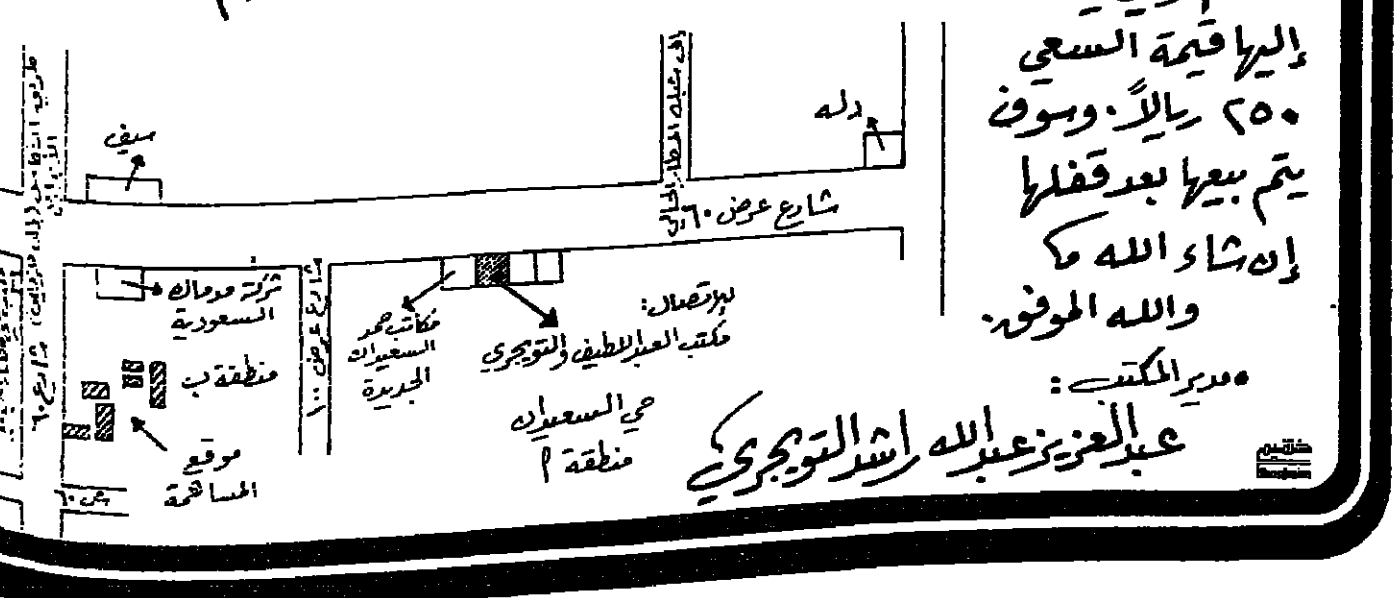 إليها قيمة السعي
٢٥٠ ريالاً. وسوف
يتم بيعها بعد قفلها
إن شاء الله كما
والله الموفق.
مدير المكتب :
عبد العزيز عبد الله راشد التويجري
دله
سيف
شارع عرض ٦٠
شركة مدماك
السعودية
منطقة ب
موقع
المساهمة
شارع عرض ١٠٠
مكاتب حمد
السعيدان
الجديدة
للإتصال:
مكتب العبد اللطيف والتويجري
حي السعيدان
منطقة أ
شارع ٦٠
عرض ٦٠